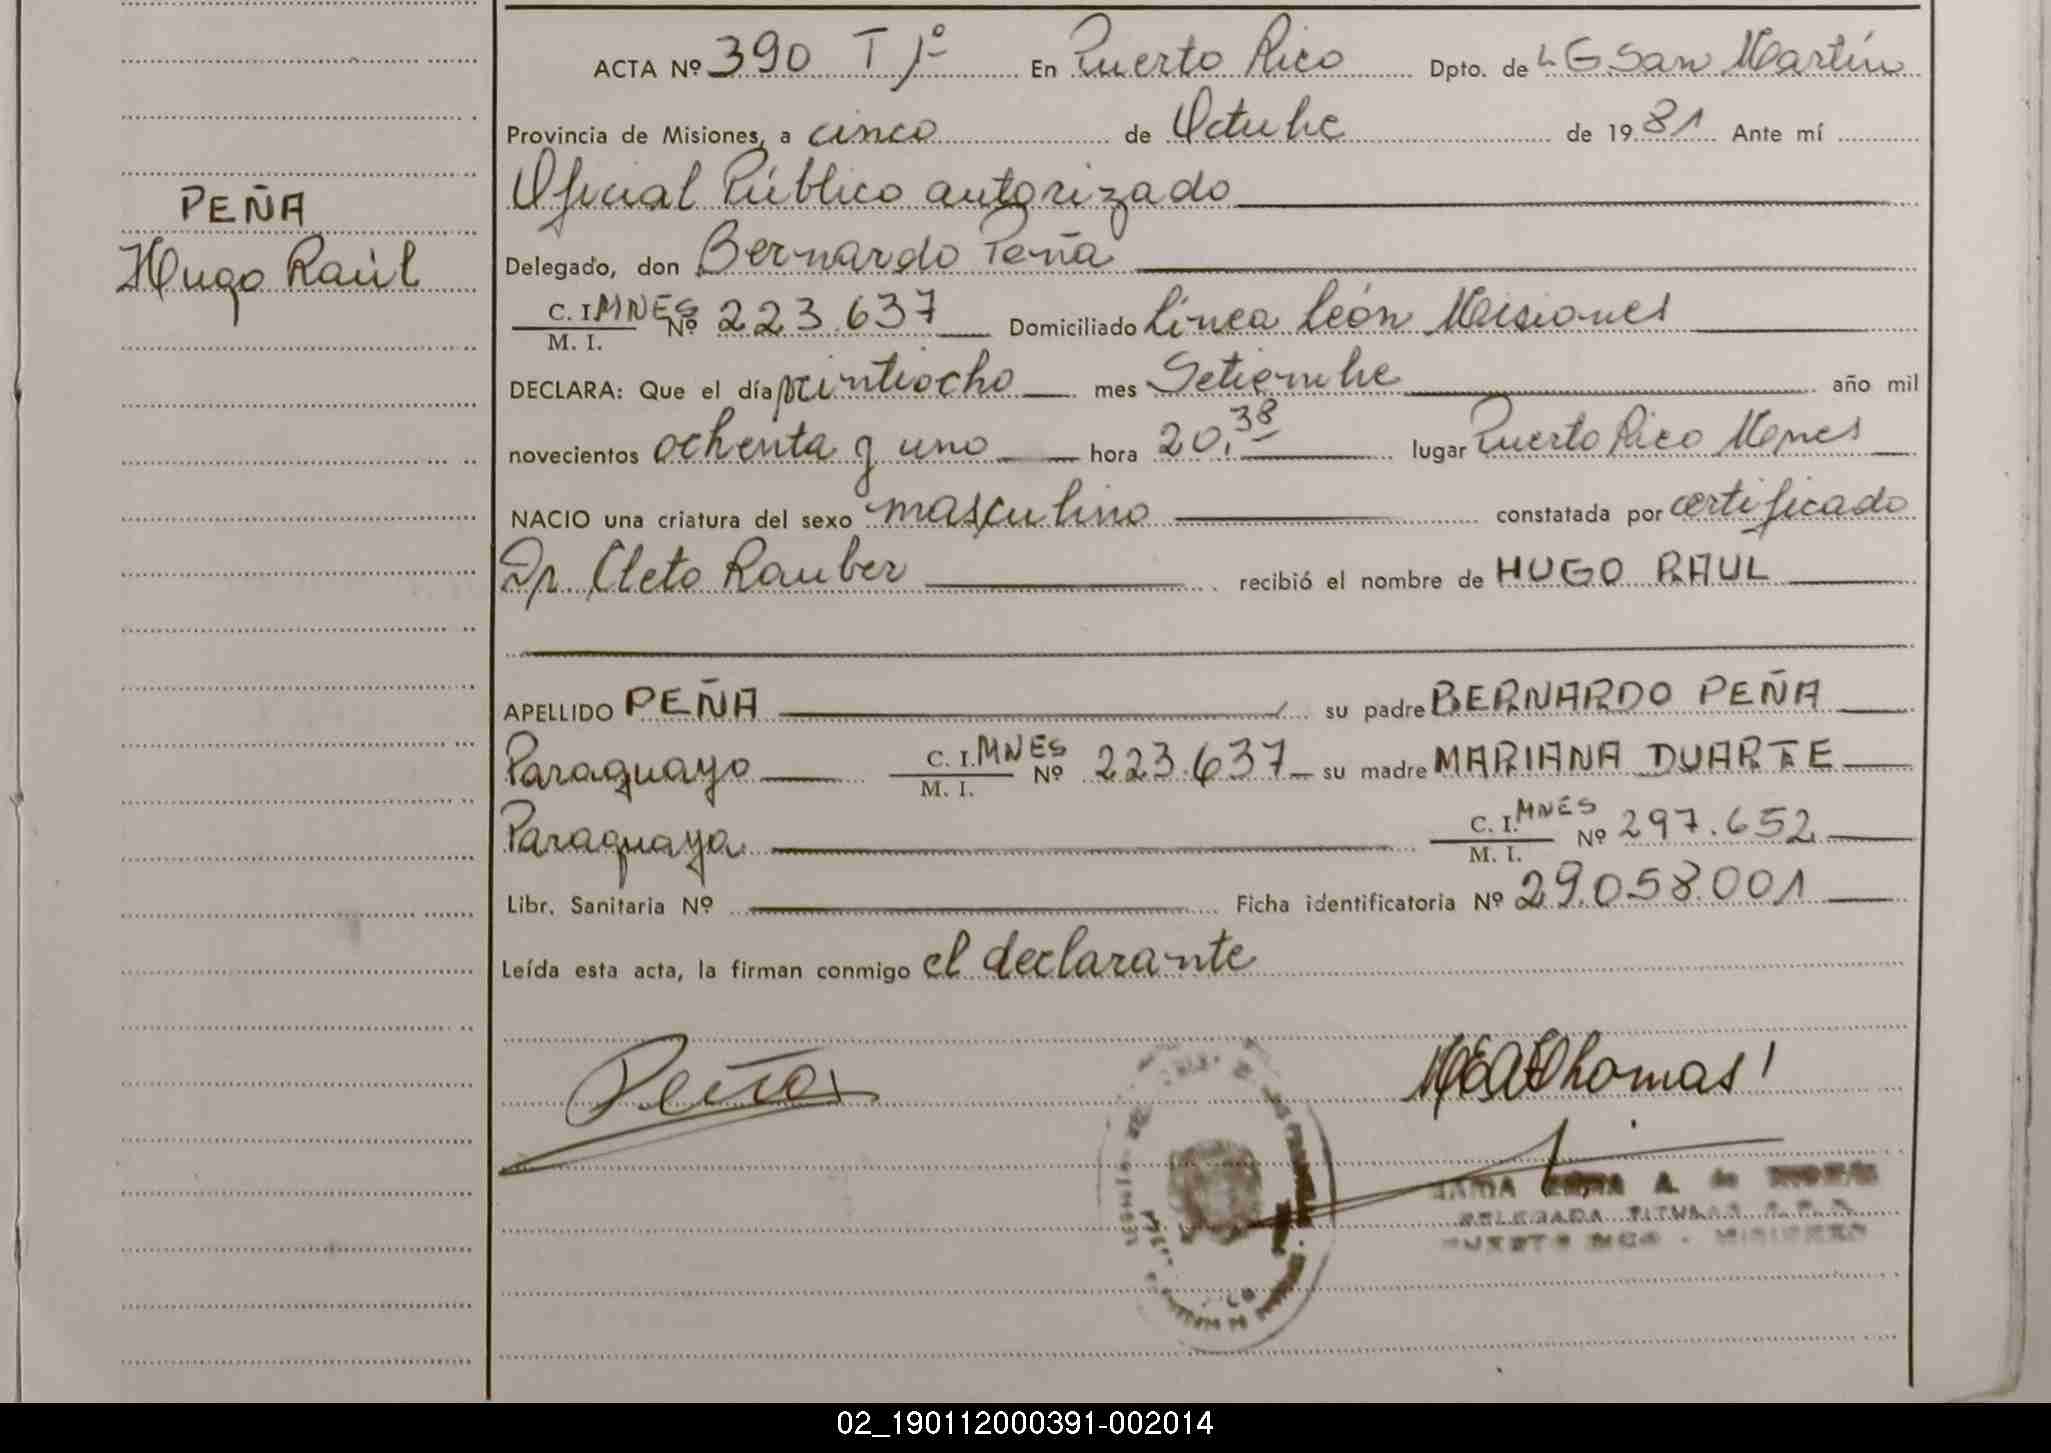 PEÑA
Hugo Raúl
ACTA Nº 390 T 1º En Puerto Rico Dpto. de L G San Martín
Provincia de Misiones, a cinco de Octubre de 1981 Ante mí
Oficial Público autorizado
Delegado, don Bernardo Peña
C. I. MNES Nº 223.637 Domiciliado Línea León Misiones
M. I.
DECLARA: Que el día veintiocho mes Setiembre año mil
novecientos ochenta y uno hora 20,38 lugar Puerto Rico Mnes
NACIO una criatura del sexo masculino constatada por certificado
Dr. Cleto Rauber recibió el nombre de HUGO RAUL
APELLIDO PEÑA su padre BERNARDO PEÑA
Paraguayo C. I. MNES Nº 223.637 su madre MARIANA DUARTE
M. I.
Paraguaya C. I. MNES Nº 297.652
M. I.
Libr. Sanitaria Nº Ficha identificatoria Nº 29.058.001
Leída esta acta, la firman conmigo el declarante
Peña
Thomas
A. de
DELEGADA TITULAR
PUERTO RICO - MISIONES
02_190112000391-002014